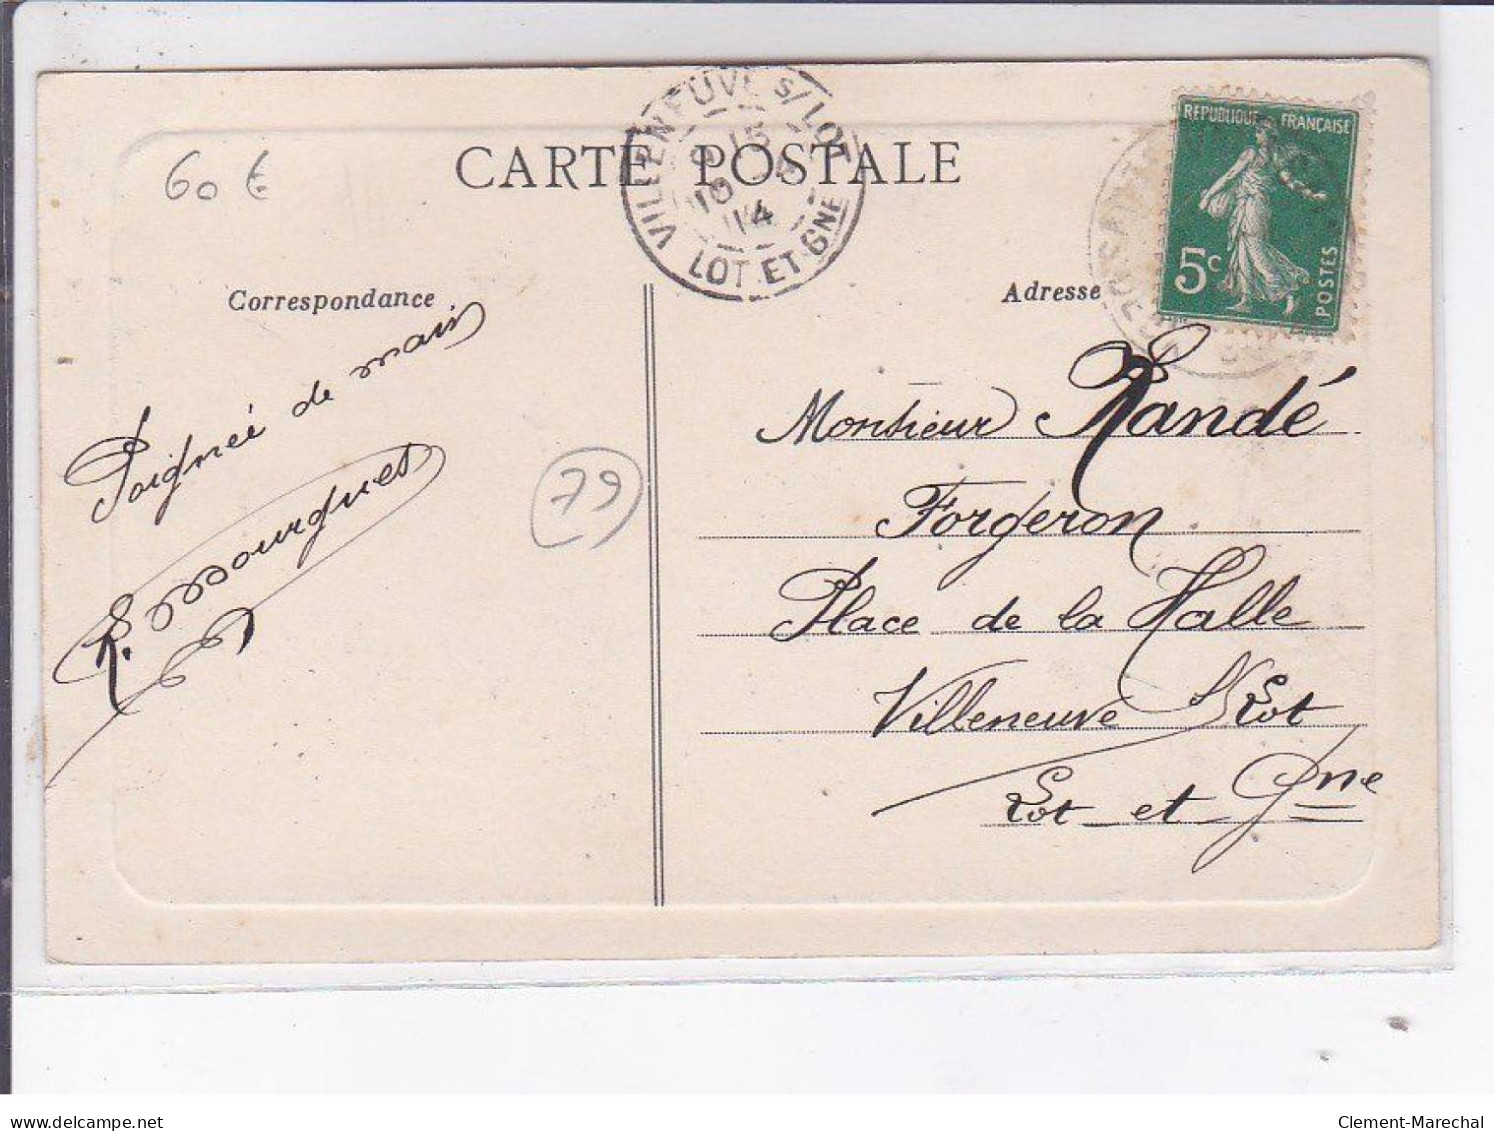 CARTE POSTALE
60 €
VILLENEUVE s/ LOT
LOT ET GNE
9 15
10 4
14
REPUBLIQUE FRANÇAISE
5c
POSTES
Correspondance
Adresse
Poignée de main
R. Bourgues
79
Monsieur Randé
Forgeron
Place de la Halle
Villeneuve s/ Lot
Lot et Gne
delcampe.net
Clement-Marechal